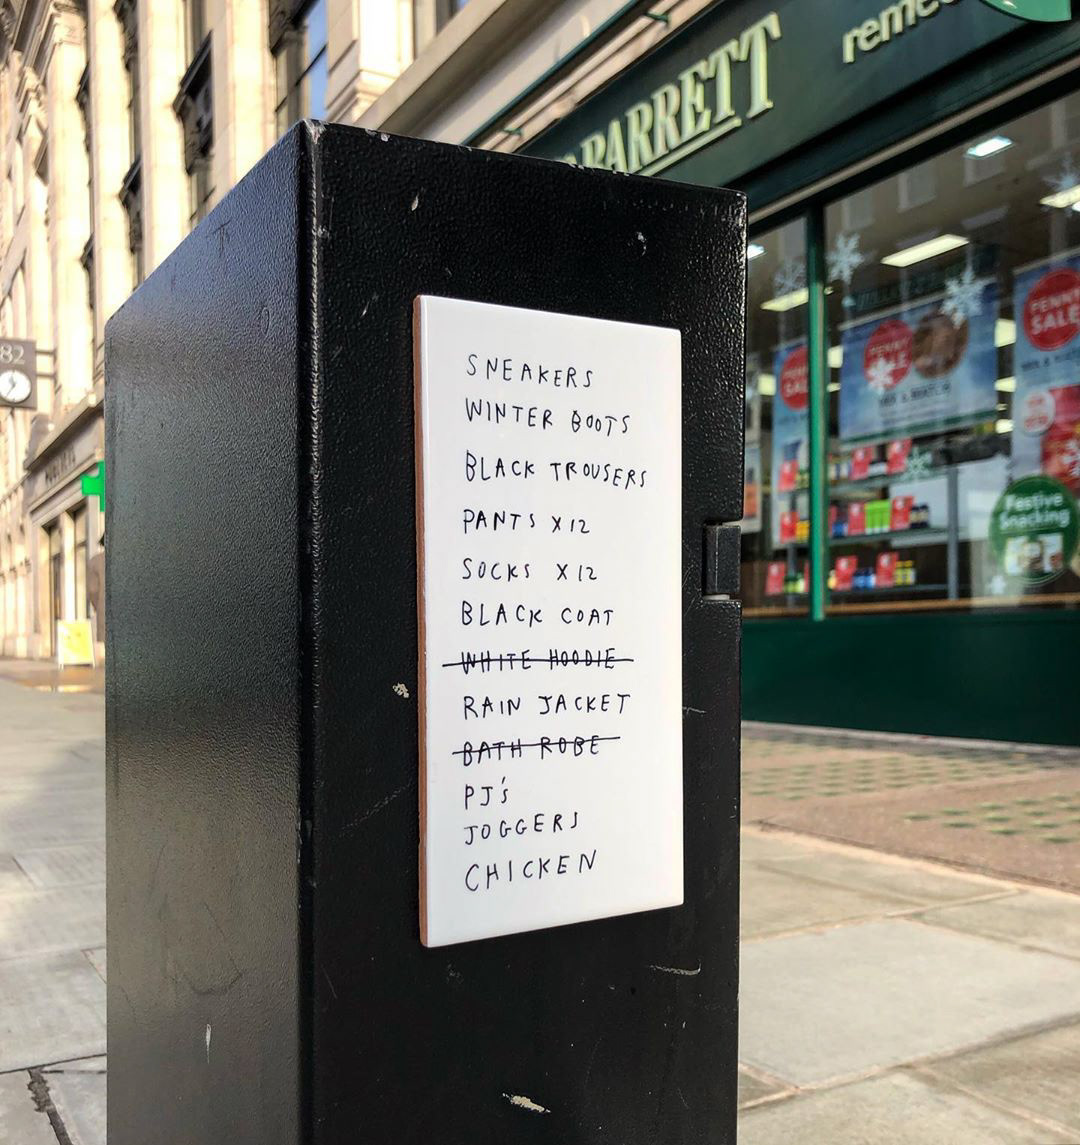 BARRETT
82
SNEAKERS
WINTER BOOTS
BLACK TROUSERS
PANTS X12
SOCKS X12
BLACK COAT
WHITE HOODIE
RAIN JACKET
BATH ROBE
PJ's
JOGGERS
CHICKEN
PENNY
SALE
PENNY
SALE
Festive
Snacking